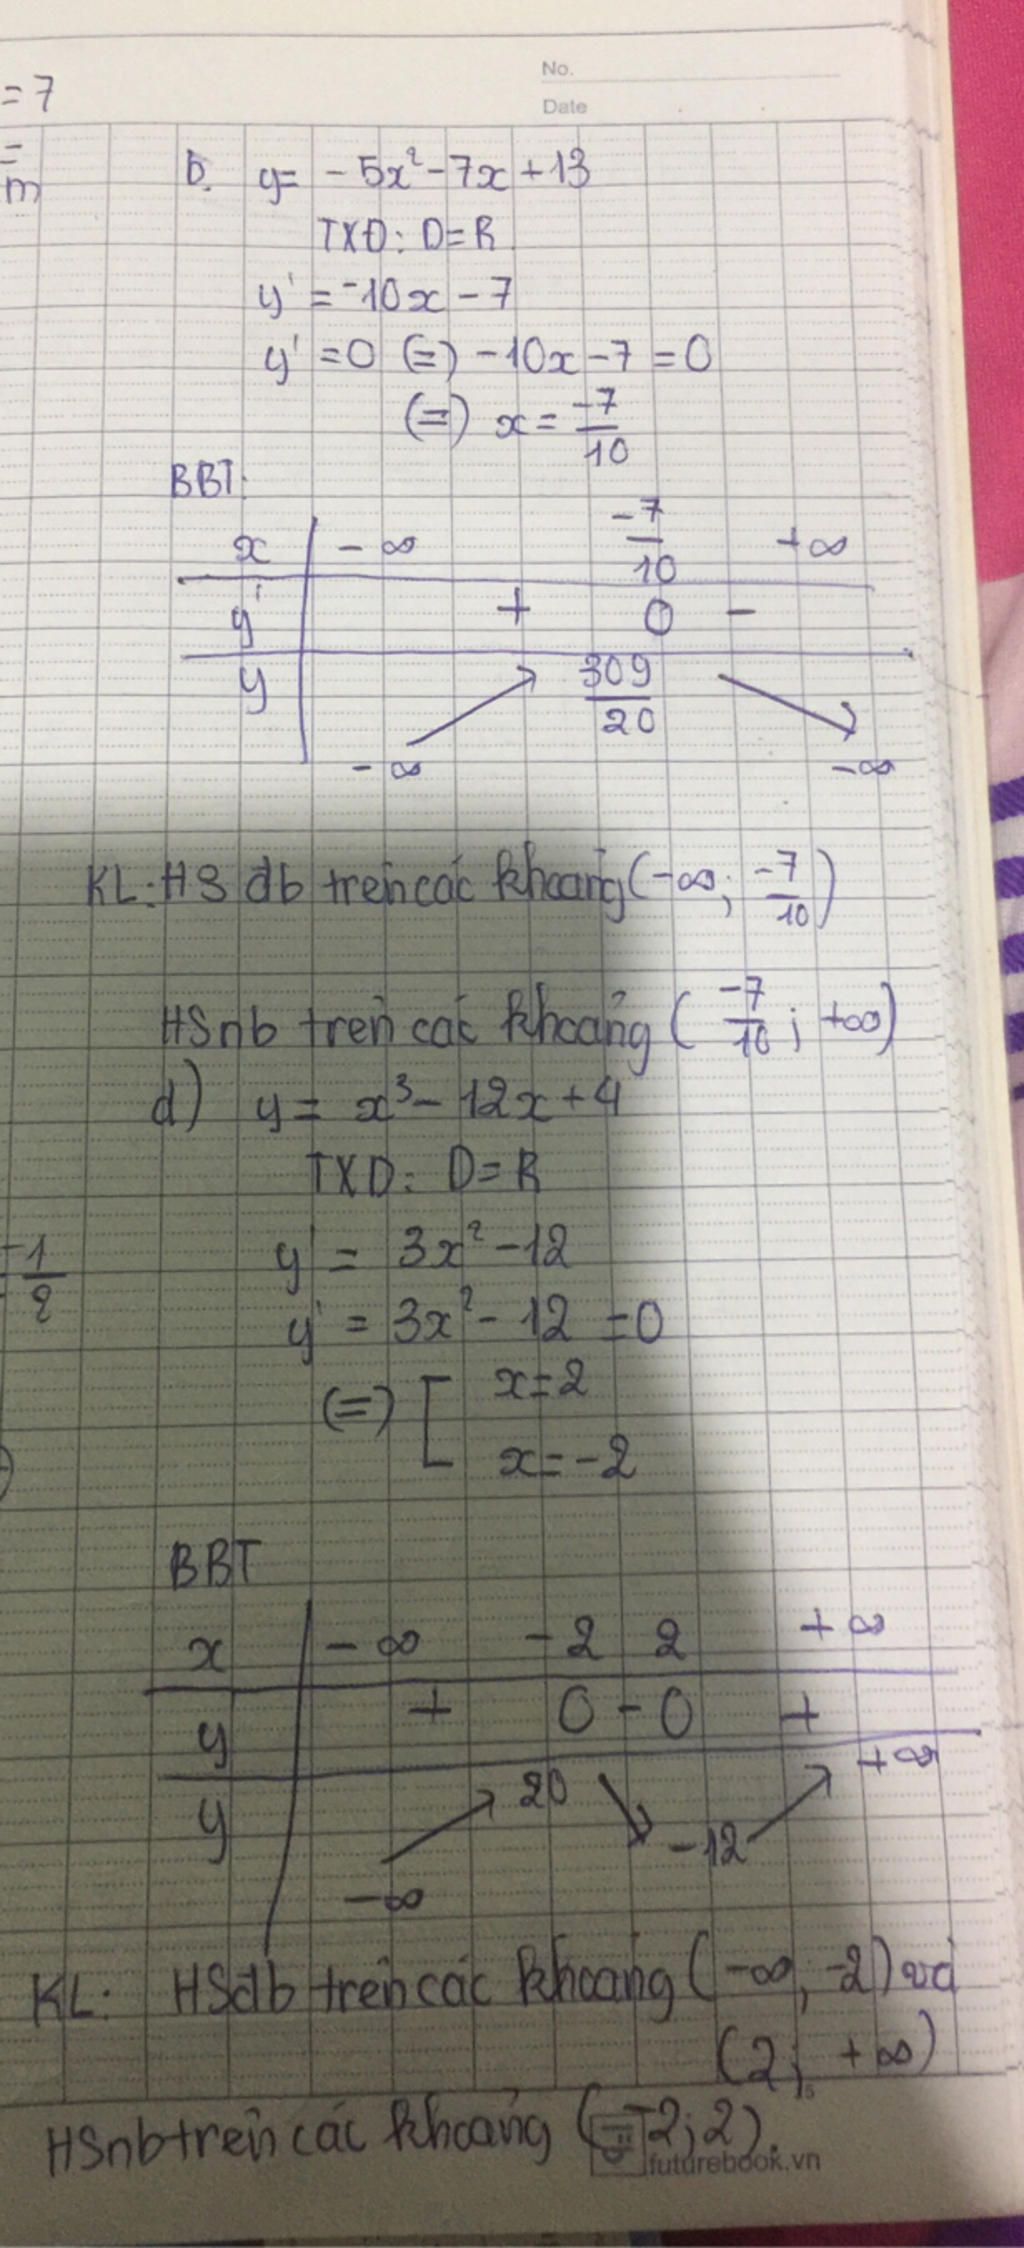 = 7
No.
Date
=
m
b. y = -5x² - 7x + 13
TXĐ: D = R
y' = -10x - 7
y' = 0 (=) -10x - 7 = 0
(=) x = -7/10
BBT:
x -∞ -7/10 +∞
y' + 0 -
y -∞ 309/20 -∞
KL: HS đb trên các khoảng (-∞; -7/10)
HSnb trên các khoảng (-7/10; +∞)
d) y = x³ - 12x + 4
TXD: D = R
-1/2
y' = 3x² - 12
y' = 3x² - 12 = 0
(=) [ x = 2
x = -2
BBT
x -∞ -2 2 +∞
y + 0 - 0 +
y -∞ 20 -12 +∞
KL: HSđb trên các khoảng (-∞; -2) và
(2; +∞)
HSnb trên các khoảng (-2; 2).
futurebook.vn